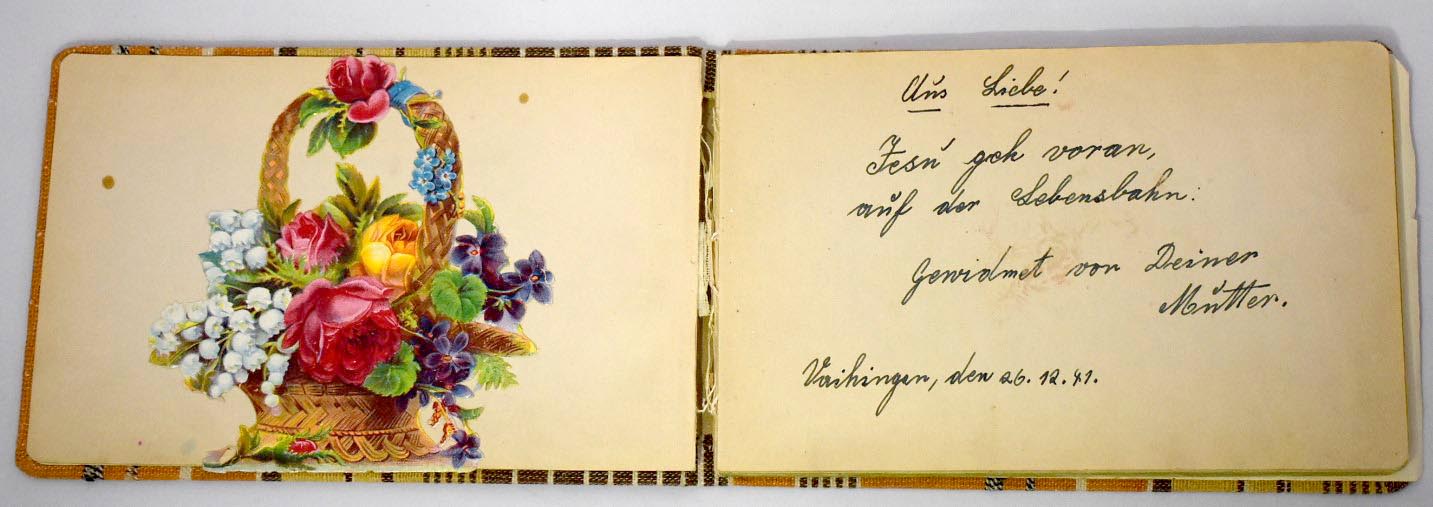 Aus Liebe!
Jesu geh voran,
auf der Lebensbahn:
Gewidmet von Deiner
Mutter.
Vaihingen, den 26.12.41.